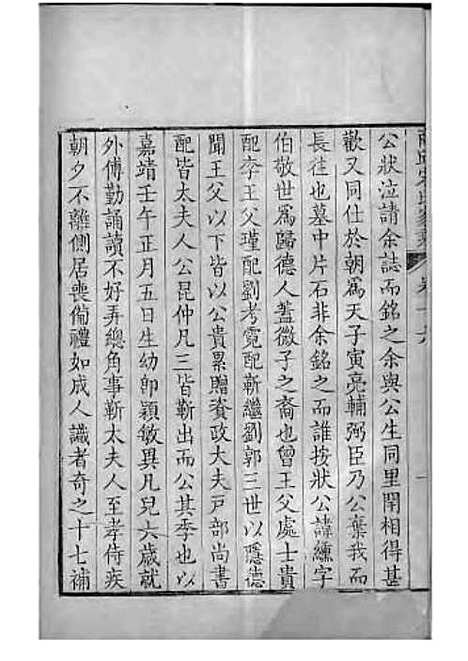 商丘宋氏家乘 卷十六
公狀泣請余誌而銘之余與公生同里閈相得甚
歡又同仕於朝爲天子寅亮輔弼臣乃公棄我而
長徃也墓中片石非余銘之而誰按狀公諱纁字
伯敬世爲歸德人蓋微子之裔也曾王父處士貴
配李王父瑾配劉考霓配靳繼劉郭三世以隱德
聞王父以下皆以公貴累贈資政大夫戸部尚書
配皆太夫人公昆仲凡三皆靳出而公其季也以
嘉靖壬午正月五日生幼卽穎敏異凡兒六歲就
外傅勤誦讀不好弄總角事靳太夫人至孝侍疾
朝夕不離側居喪僃禮如成人識者奇之十七補